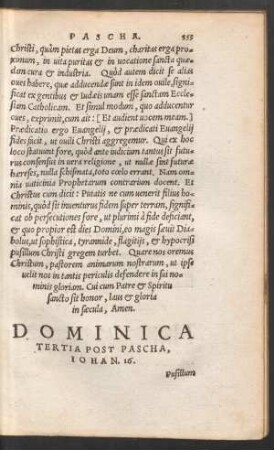 PASCHA. 955
Christi, quàm pietas erga Deum, charitas erga pro=
ximum, in vita puritas & in vocatione sancta quæ=
dam cura & industria. Quòd autem dicit se alias
oues habere, quæ adducendæ sint in idem ouile, signifi=
cat ex gentibus & iudæis unam esse sanctam Eccle=
siam Catholicam. Et simul modum, quo adducentur
eæ, exprimit, cum ait: [Et audient uocem meam.]
Prædicatio ergo Euangelij, & prædicati Euangelij
fides facit, ut ouili Christi aggregemur. Qui ex hoc
loco statuunt fore, quòd ante iudicium tantus sit futu=
rus consensus in vera religione, ut nullæ sint futuræ
hæreses, nulla schismata, toto cœlo errant. Nam om=
nia uaticinia Prophetarum contrarium docent. Et
Christus cum dicit: Putatis ne cum uenerit filius ho=
minis, quòd sit inuenturus fidem super terram, signifi=
cat ob persecutiones fore, ut plurimi à fide deficiant,
& quo propior est dies Domini, eo magis sæuit Dia=
bolus, ut sophistica, tyrannide, flagitijs, & hypocrisi
pusillum Christi gregem turbet. Quare nos oremus
Christum, pastorem animarum nostrarum, ut ipse
uelit nos in tantis periculis defendere in sui no=
minis gloriam. Cui cum Patre & Spiritu
sancto sit honor, laus & gloria
in sæcula, Amen.
DOMINICA
TERTIA POST PASCHA,
IOHAN. 16.
Pusillum